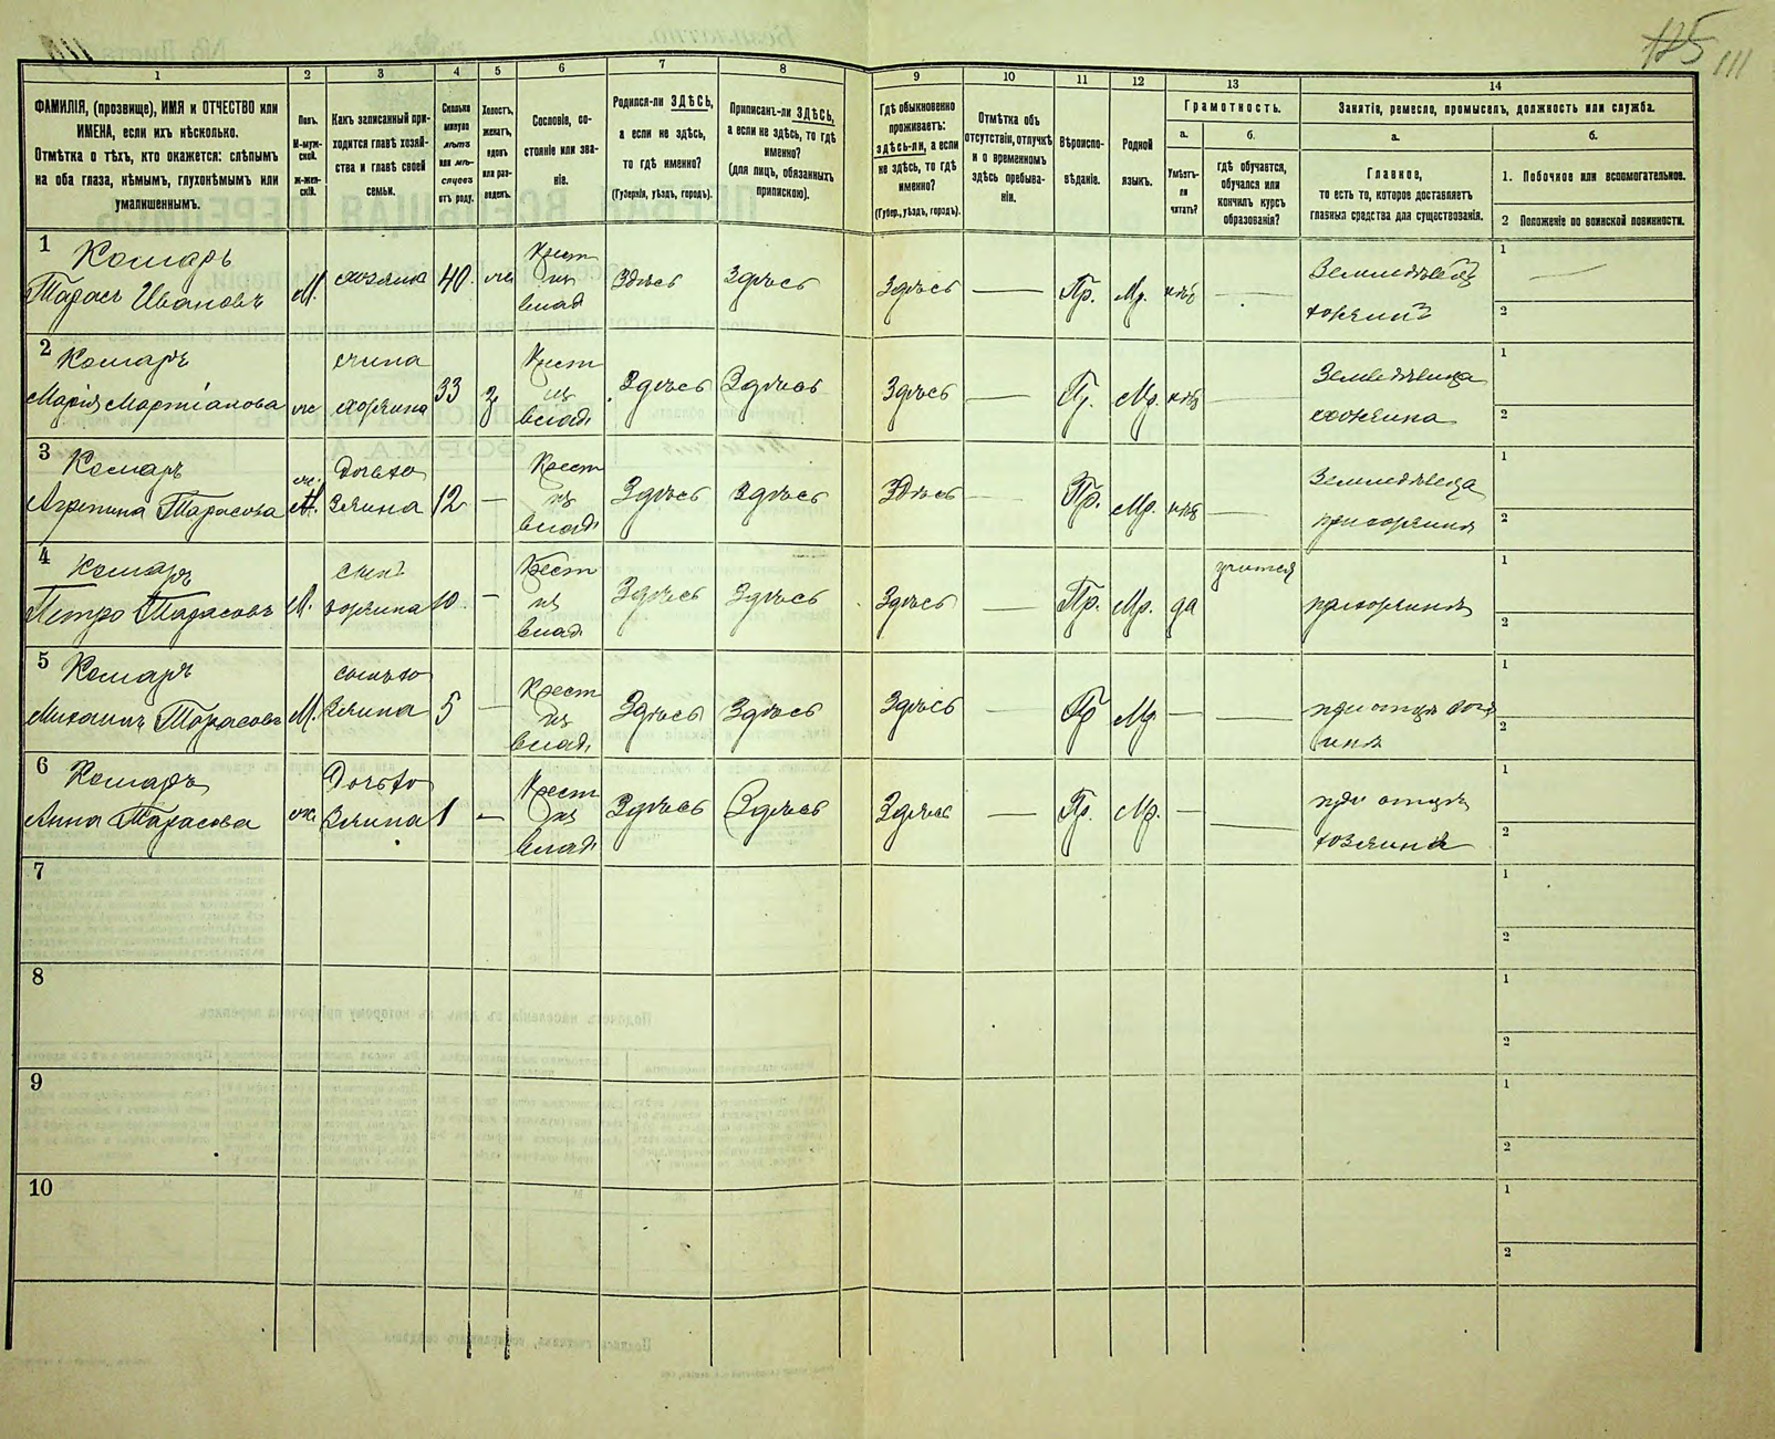 125 111
1 2 3 4 5 6 7 8 9 10 11 12 13 14
ФАМИЛІЯ, (прозвище), ИМЯ и ОТЧЕСТВО или
ИМЕНА, если ихъ нѣсколько.
Отмѣтка о тѣхъ, кто окажется: слѣпымъ
на оба глаза, нѣмымъ, глухонѣмымъ или
умалишеннымъ.
Полъ.
М-муж-
ской.
Ж-жен-
скій.
Какъ записанный при-
ходится главѣ хозяй-
ства и главѣ своей
семьи.
Сколько
минуло
лѣтъ
или мѣ-
сяцевъ
отъ роду.
Холостъ,
женатъ,
вдовъ
или раз-
веденъ.
Сословіе, со-
стояніе или зва-
ніе.
Родился-ли ЗДѢСЬ,
а если не здѣсь,
то гдѣ именно?
(Губернія, уѣздъ, городъ).
Приписанъ-ли ЗДѢСЬ,
а если не здѣсь, то гдѣ
именно?
(для лицъ, обязанныхъ
припискою).
Гдѣ обыкновенно
проживаетъ:
здѣсь-ли, а если
не здѣсь, то гдѣ
именно?
(Губер., уѣздъ, городъ).
Отмѣтка объ
отсутствіи, отлучкѣ
и о временномъ
здѣсь пребыва-
ніи.
Вѣроиспо-
вѣданіе.
Родной
языкъ.
Грамотность.
а.
Умѣетъ-
ли
читать?
б.
гдѣ обучается,
обучался или
кончилъ курсъ
образованія?
Занятіе, ремесло, промыселъ, должность или служба.
а.
Главное,
то есть то, которое доставляетъ
главныя средства для существованія.
б.
1. Побочное или вспомогательное.
2 Положеніе по воинской повинности.
1 Комаръ
Тарасъ Ивановъ М. хозяинъ 40. же Крест из влад Здѣсь Здѣсь Здѣсь — Пр. Мр. нѣт — Земледѣлец хозяинъ
1 —
2
2 Комаръ
Марія Мартіанова же жена хозяина 33 з Крест из влад. Здѣсь Здѣсь Здѣсь — Пр. Мр. нѣт — Земледѣлица хозяина
1
2
3 Комаръ
Агрепина Тарасова же. дочь хо зяина 12 — Крест из влад. Здѣсь Здѣсь Здѣсь — Пр. Мр. нѣт — Земледѣлица при хозяинѣ
1
2
4 Комаръ
Петро Тарасовъ М. сынъ хозяина 10. — Крест из влад. Здѣсь Здѣсь Здѣсь — Пр. Мр. да учится при хозяинѣ
1
2
5 Комаръ
Михаилъ Тарасовъ М. сынъ хо зяина 5 — Крест из влад. Здѣсь Здѣсь Здѣсь — Пр Мр — — при отцѣ хозя инѣ
1
2
6 Комаръ
Анна Тарасова же. Дочь хо зяина 1 — Крест из влад. Здѣсь Здѣсь Здѣсь — Пр. Мр. — — при отцѣ хозяинѣ
1
2
7
1
2
8
1
2
9
1
2
10
1
2